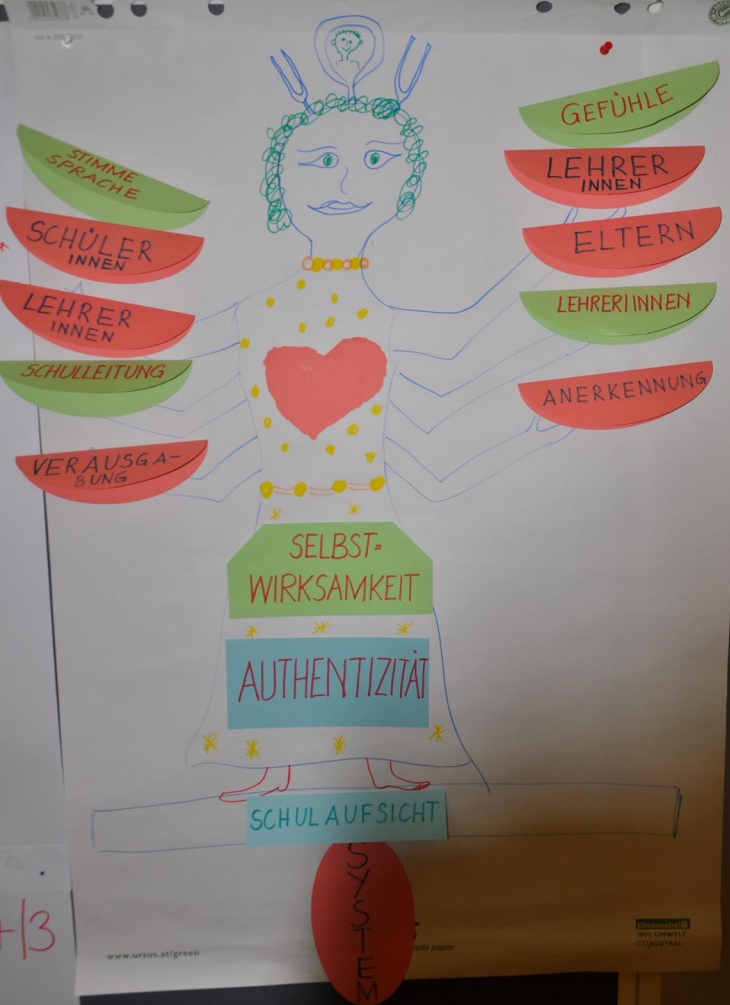 STIMME
SPRACHE
SCHÜLER
INNEN
LEHRER
INNEN
SCHULLEITUNG
VERAUSGA-
BUNG
GEFÜHLE
LEHRER
INNEN
ELTERN
LEHRERINNEN
ANERKENNUNG
SELBST=
WIRKSAMKEIT
AUTHENTIZITÄT
SCHULAUFSICHT
SYSTEM
+/3
www.ursus.at/green
ple paper
100% UMWELT
CO2NEUTRAL